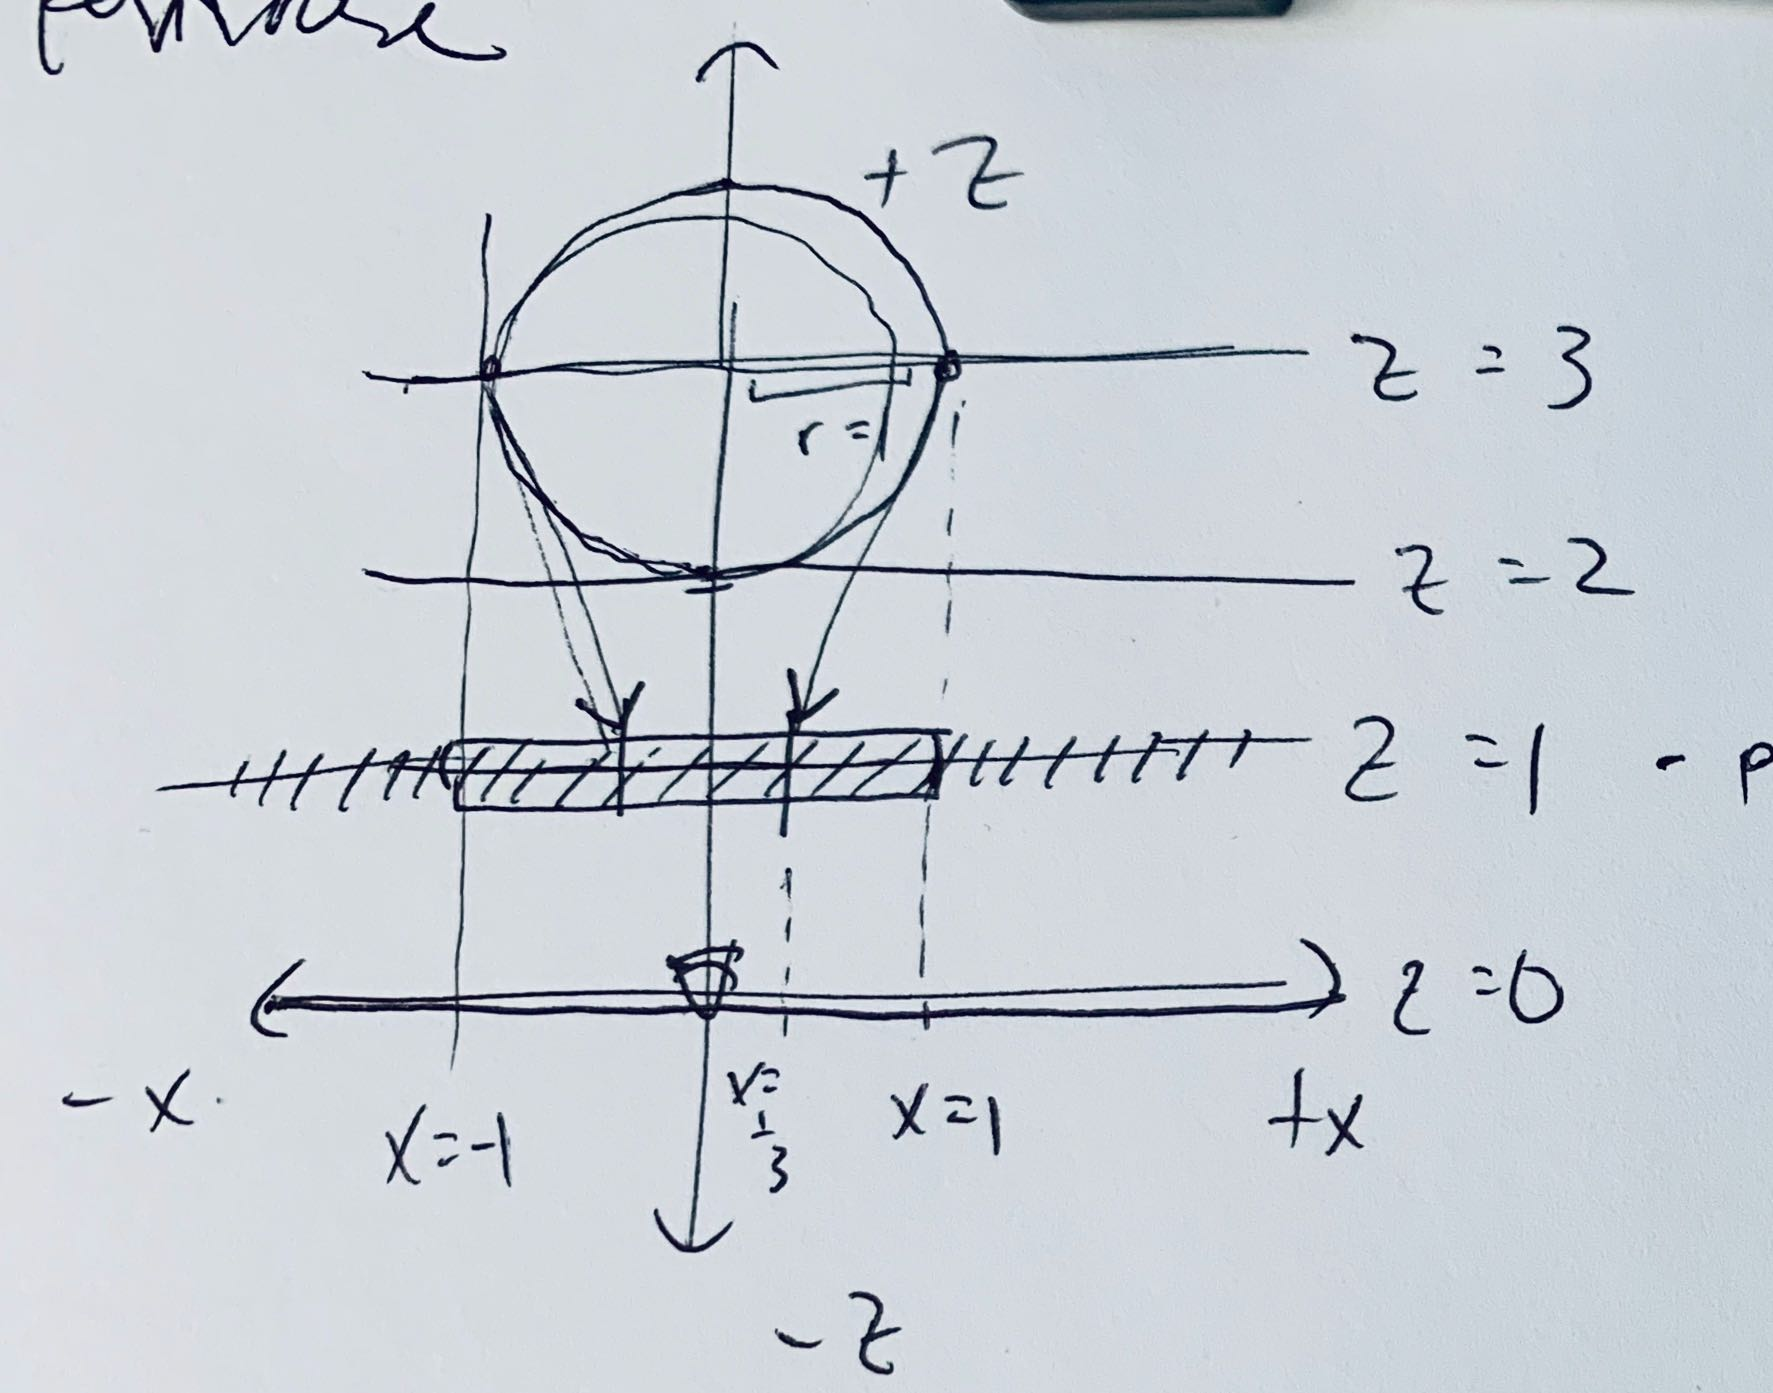 + Z
Z = 3
r =
Z = 2
Z = 1 - P
Z = 0
- X
X = -1
X = 1/3
X = 1
+X
- Z